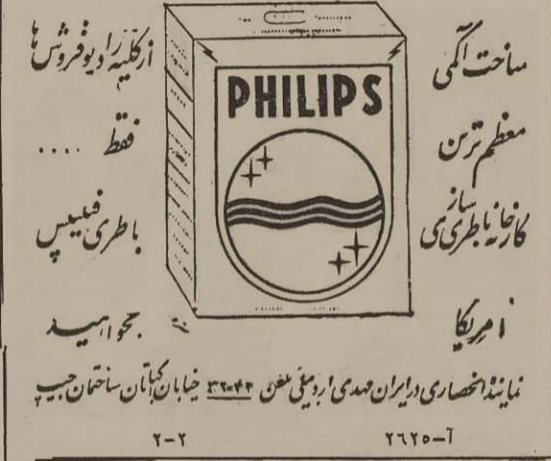 ساخت آکمی
معظم ترین
کارخانه باطری سازی
امریکا
PHILIPS
از کلیه رادیو فروش ها
فقط ....
باطری فیلیپس
بخواهید
نماینده انحصاری در ایران مهدی اردبیلی تلفن ۳۲۰۴۲ خیابان اکباتان ساختمان حبیب
آ-۲٦۲۵
۲-۲